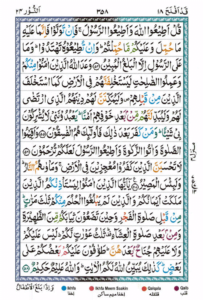 قَدْ اَفْلَحَ ١٨
٣٥٨
اَلنُّوْر ٢٤
قُلْ اَطِيْعُوا اللّٰهَ وَاَطِيْعُوا الرَّسُوْلَ ۚ فَاِنْ تَوَلَّوْا فَاِنَّمَا عَلَيْهِ
مَا حُمِّلَ وَعَلَيْكُمْ مَّا حُمِّلْتُمْ ؕ وَاِنْ تُطِيْعُوْهُ تَهْتَدُوْا ؕ وَمَا
عَلَى الرَّسُوْلِ اِلَّا الْبَلٰغُ الْمُبِيْنُ وَعَدَ اللّٰهُ الَّذِيْنَ اٰمَنُوْا مِنْكُمْ
وَعَمِلُوا الصّٰلِحٰتِ لَيَسْتَخْلِفَنَّهُمْ فِي الْاَرْضِ كَمَا اسْتَخْلَفَ
الَّذِيْنَ مِنْ قَبْلِهِمْ ۪ وَلَيُمَكِّنَنَّ لَهُمْ دِيْنَهُمُ الَّذِي ارْتَضٰى
لَهُمْ وَلَيُبَدِّلَنَّهُمْ مِّنْۢ بَعْدِ خَوْفِهِمْ اَمْنًا ؕ يَعْبُدُوْنَنِيْ لَا يُشْرِكُوْنَ
بِيْ شَيْـًٔا ؕ وَمَنْ كَفَرَ بَعْدَ ذٰلِكَ فَاُولٰٓئِكَ هُمُ الْفٰسِقُوْنَ وَاَقِيْمُوا
الصَّلٰوةَ وَاٰتُوا الزَّكٰوةَ وَاَطِيْعُوا الرَّسُوْلَ لَعَلَّكُمْ تُرْحَمُوْنَ
لَا تَحْسَبَنَّ الَّذِيْنَ كَفَرُوْا مُعْجِزِيْنَ فِي الْاَرْضِ ۚ وَمَاْوٰىهُمُ النَّارُ ؕ
وَلَبِئْسَ الْمَصِيْرُ يٰٓاَيُّهَا الَّذِيْنَ اٰمَنُوْا لِيَسْتَاْذِنْكُمُ الَّذِيْنَ
مَلَكَتْ اَيْمَانُكُمْ وَالَّذِيْنَ لَمْ يَبْلُغُوا الْحُلُمَ مِنْكُمْ ثَلٰثَ
مَرّٰتٍ ؕ مِنْ قَبْلِ صَلٰوةِ الْفَجْرِ وَحِيْنَ تَضَعُوْنَ ثِيَابَكُمْ مِّنَ الظَّهِيْرَةِ
وَمِنْۢ بَعْدِ صَلٰوةِ الْعِشَآءِ ؕ ثَلٰثُ عَوْرٰتٍ لَّكُمْ ؕ لَيْسَ عَلَيْكُمْ
وَلَا عَلَيْهِمْ جُنَاحٌۢ بَعْدَهُنَّ ؕ طَوّٰفُوْنَ عَلَيْكُمْ بَعْضُكُمْ عَلٰى
بَعْضٍ ؕ كَذٰلِكَ يُبَيِّنُ اللّٰهُ لَكُمُ الْاٰيٰتِ ؕ وَاللّٰهُ عَلِيْمٌ حَكِيْمٌ
وَاِذَا بَلَغَ الْاَطْفَالُ
Ikhfa Meem Saakin
Qalqala